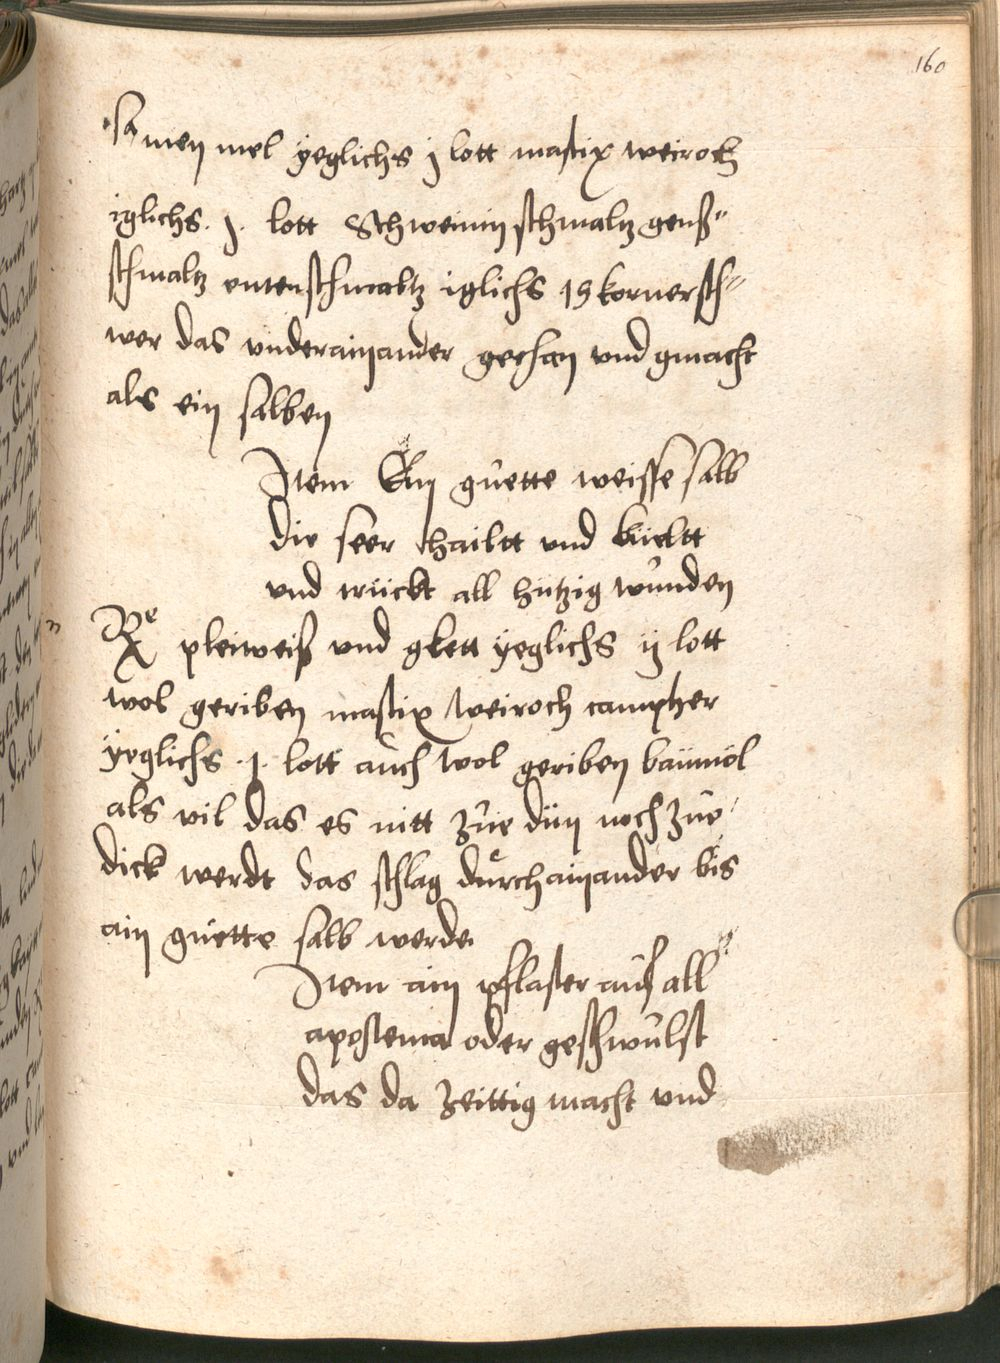 160
samen mel yeglichs j lott mastix weiroch
iglichs . j . lott Schweininschmaltz genß„
schmaltz entenschmaltz iglichs 15 kornersch„
wer das underainander gethan und gmacht
als ein salben
Item Ein guette weisse salb
die seer hailtt und küeltt
und trückt all hützig wunden
Re pleiweiß und glett yeglichs ij lott
wol geriben mastix weiroch campher
yeglichs . j . lott auch wol geriben baümöl
als vil das es nitt zue dün noch zue
dick werdt das schlag durchainander bis
ain guette salb werde
Item ain pflaster auf all
apostema oder geschwulst
das da zeittig macht und